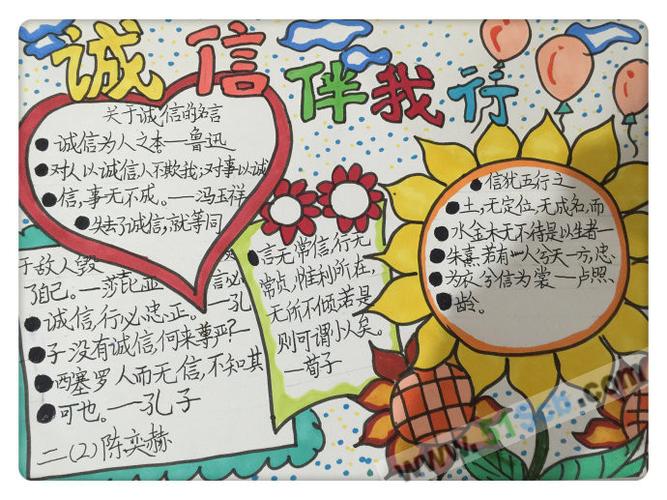 诚信伴我行
关于诚信的名言
诚信为人之本——鲁迅
对人以诚信人不欺我;对事以诚
信,事无不成。——冯玉祥
失去了诚信,就等同
于敌人毁
了自己。——莎
言必
诚信,行必忠正。——孔
子 没有诚信,何来尊严?—
西塞罗 人而无信,不知其
可也。——孔子
二(2)陈奕赫
言无常信,行无
常贞,惟利所在,
无所不倾若是
则可谓小人矣。
—荀子
信犹五行之
土,无定位,无成名,而
水金木无不待是以生者—
朱熹.若有一人兮天一方,忠
为衣兮信为裳—卢照
龄。
www.51Scb.com